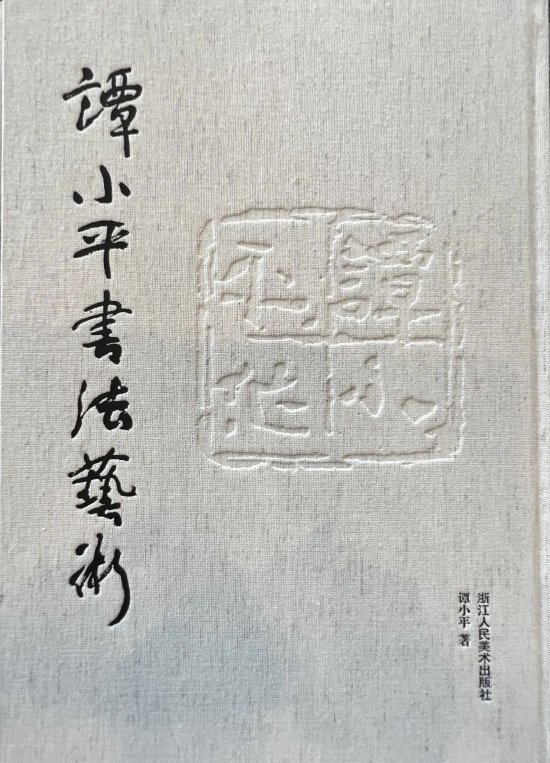 譚小平書法藝術
譚小
浙江人民美术出版社
谭小平 著